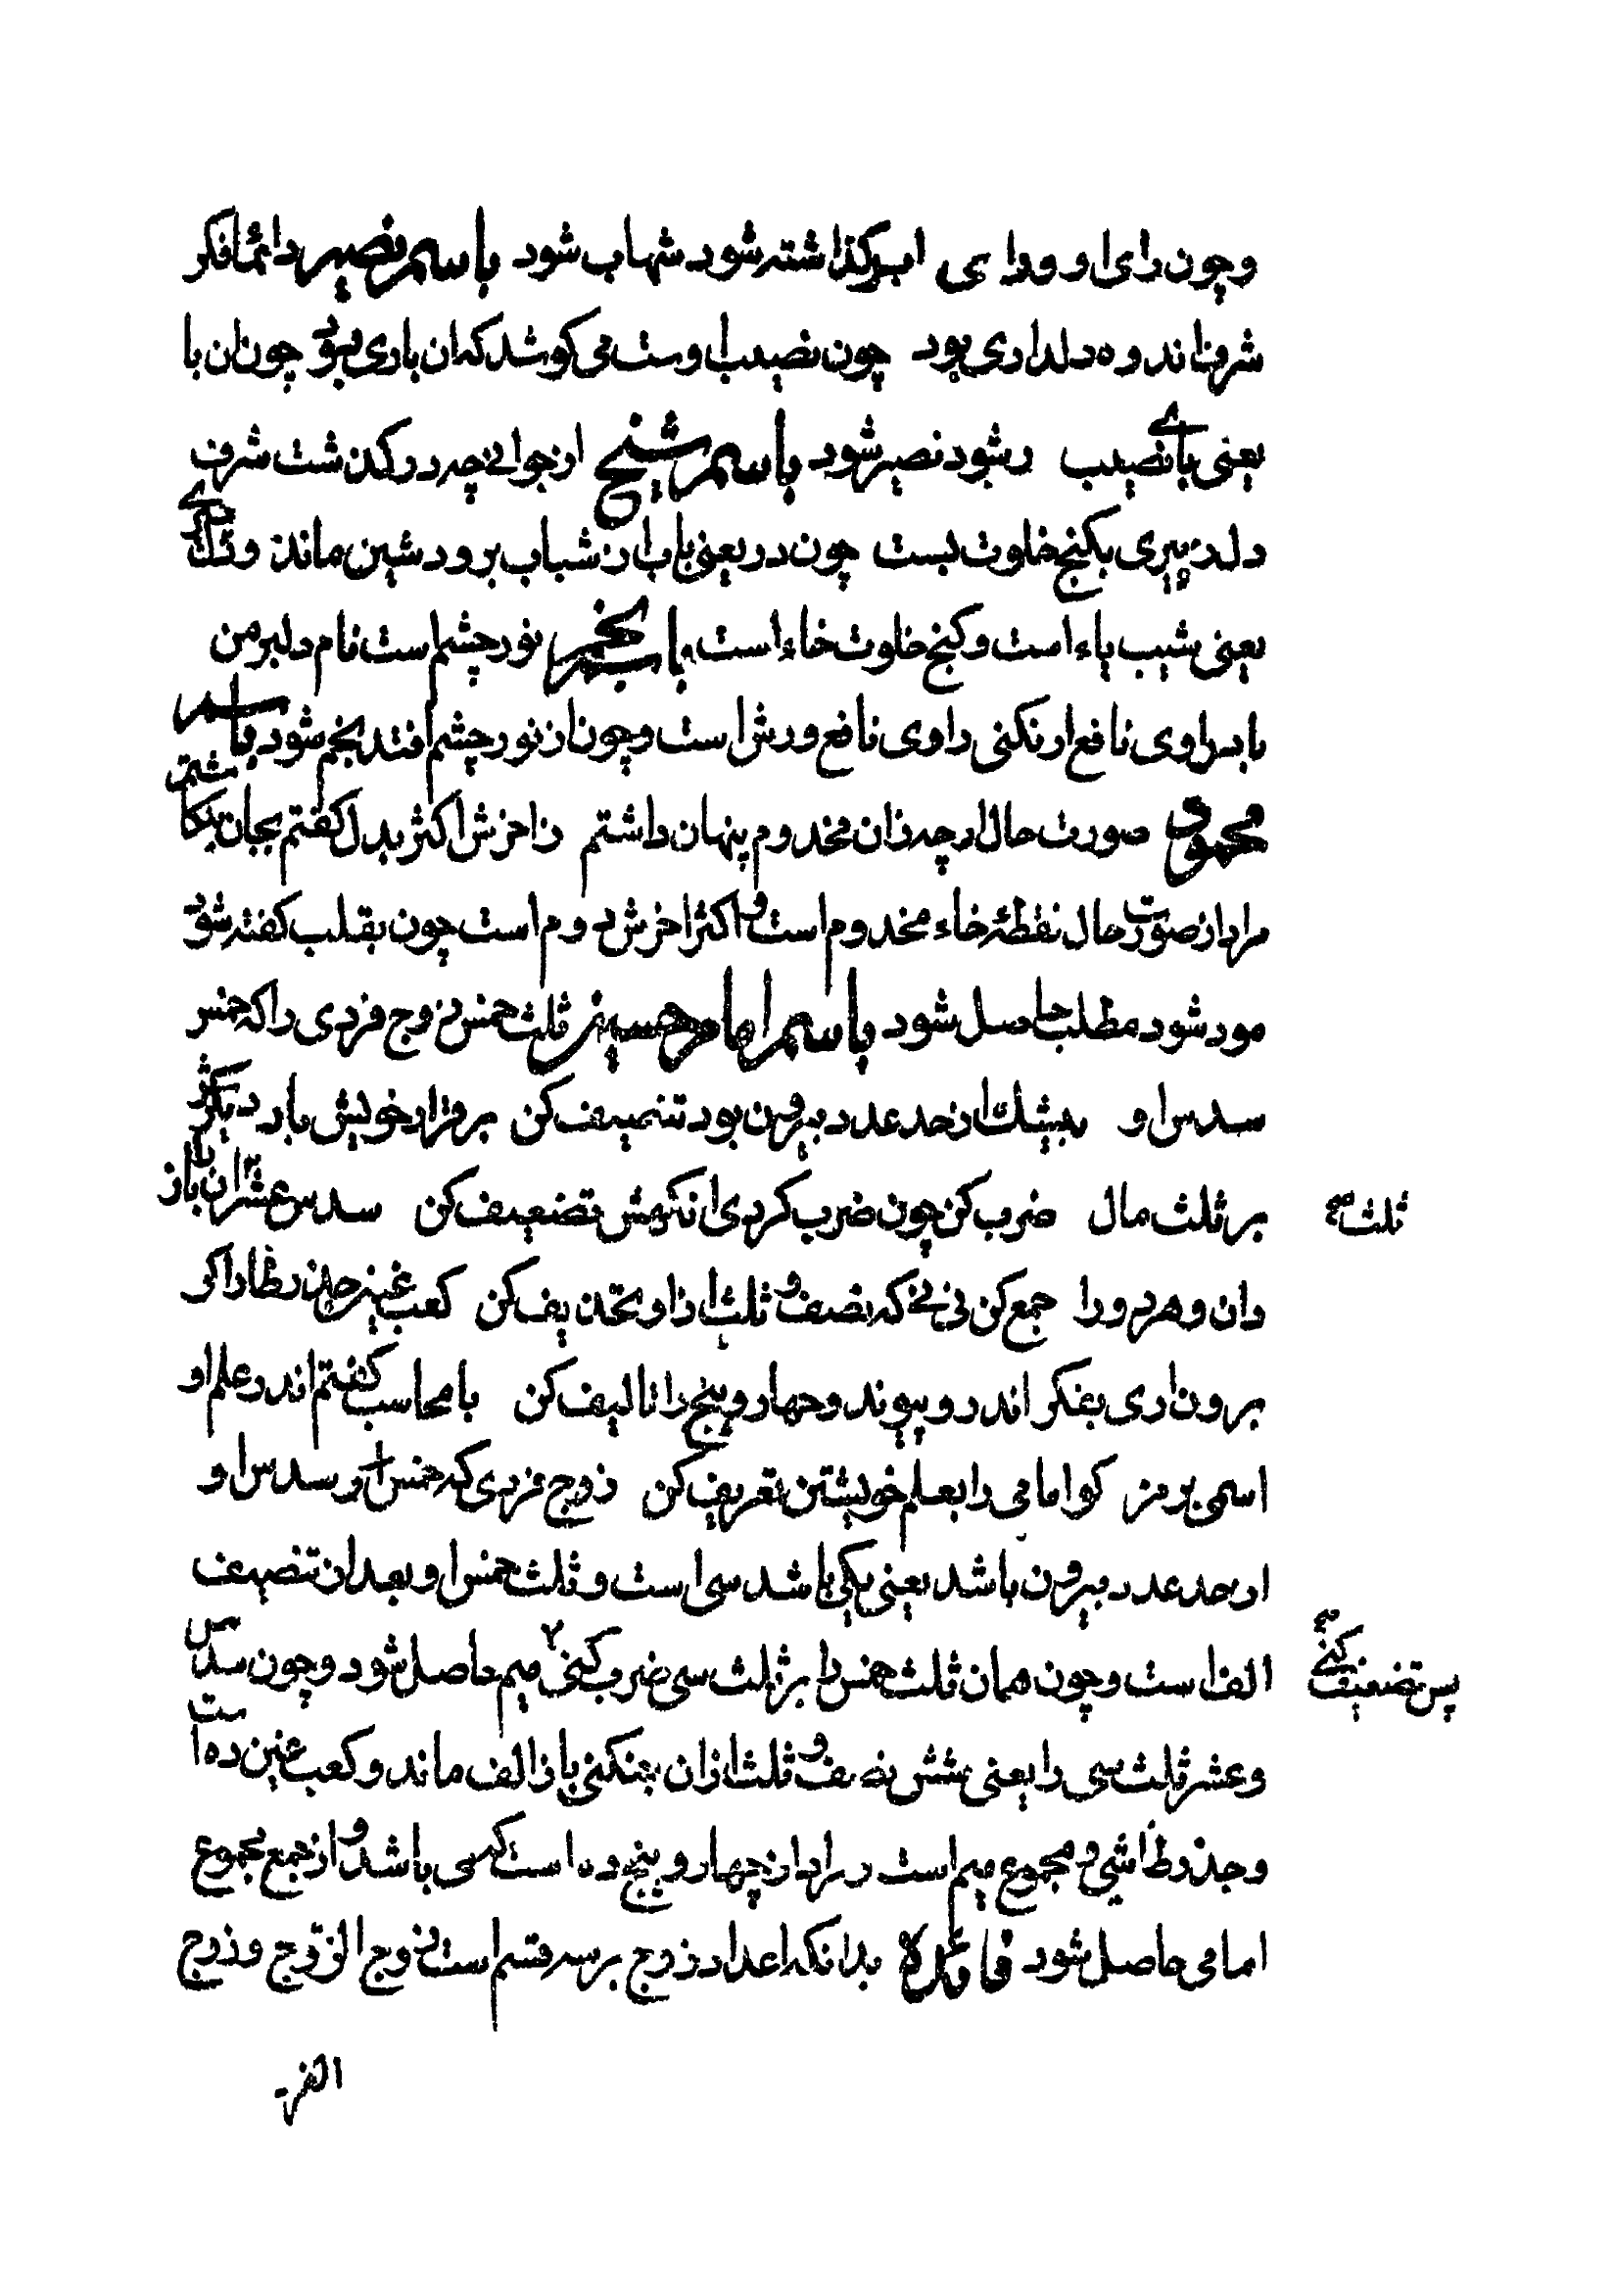 وچون رای او ورای اب گذاشته شود شهاب شود باسم نصیر دائما فکر
شرفنا اندوه دلداری بود چون نصیب اوست می کوشد که ان باری بود چون ان با
یعنی بای نصیب ر شود نصیر شود باسم شیخ از جوانی چه در گذشت شرف
دلد پیری بکنج خلوت بست چون در یعنی باب از شباب برود شین ماند وتک
یعنی شیب یاء است وکنج خلوت خاء است باسم نجم نور چشم است نام دلبر من
یا بس اوی نافع ار نکنی راوی نافع ورش است وچون از نور چشم افتد نجم شود باسم
محمود صورت حال ارچه زان مخدوم پنهان داشتم زاخرش اکثر بدل گفتم بجان بنکاشتم
مراد از صورت حال نقطهٔ خاء مخدوم است و اکثر اخرش دوم است چون بقلب گفته شود
مود شود مطلب حاصل شود باسم امام حسین ثلث خمس زوج فردی را که خمس
سدس او بیشک از حد عدد بیرون بود تنصیف کن بر قرار خویش بار دیگرش
بر ثلث مال ضرب کن چون ضرب کردی انگهش تضعیف کن سدس عشر ان را باز
ثلث صح
دان وهر دو را جمع کن نی نی که نصف و ثلث از او تحذیف کن کعب غین جذر ظا را گر
برون اری بفکر اندر و پیوند وچهار و پنج را تالیف کن با محاسب گفتم اندر علم او
اسمی برمز کو امامی را بعلم خویشتن تعریف کن زوج فردی که خمس از سدس او
از حد عدد بیرون باشد یعنی یکی باشد سی است و ثلث خمس او بعد از تنصیف
الف است وچون همان ثلث خمس را بر ثلث سی ضرب کنی میم حاصل شود وچون سدس
پس تضعیف کنی صح
وعشر ثلث سی را یعنی شش نصف و ثلث ازان بیفکنی باز الف ماند و کعب غین ده است
وجذر ظا سی و مجموع میم است مراد از چهار و پنج ده است که سی باشد و از جمع مجموع
امامی حاصل شود فائده بدانکه اعداد زوج بر سه قسم است زوج الزوج و زوج
الفر